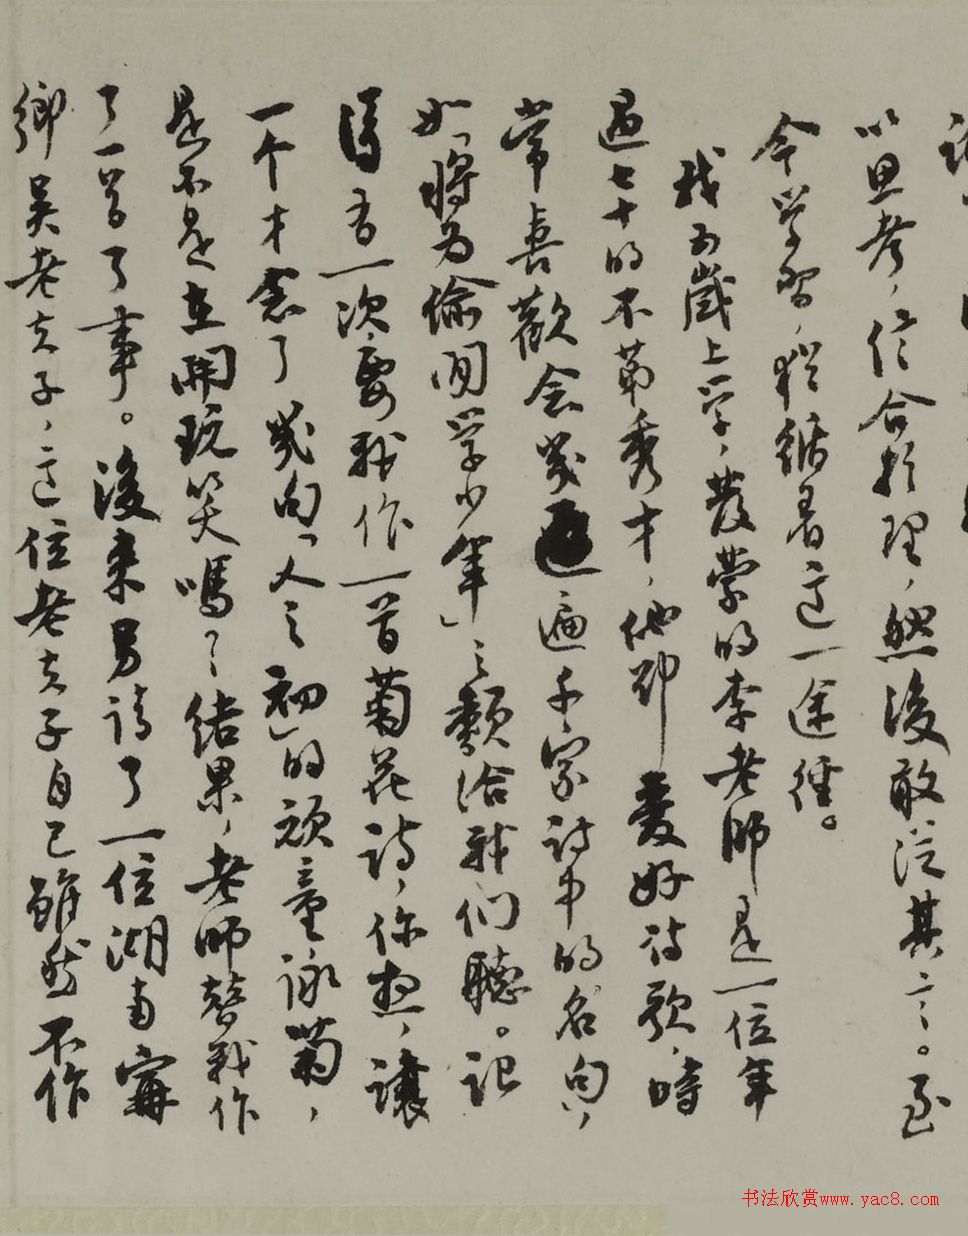 以思考，信合於理，然後敢從其言。至
今学習，猶循着这一途徑。
我五歲上学，發蒙的李老師是一位年
過七十的不第秀才，他卻愛好詩歌，時
常喜歡念幾遍千家詩中的名句，
如「將为偷閒学少年」之類給我們聽。記
得有一次要我作一首菊花詩，你想，讓
一个才念了幾句「人之初」的頑童詠菊，
是不是在開玩笑嗎？結果，老師替我作
了一首了事。後来另請了一位湖南寗
鄉吴老夫子，这位老夫子自己雖然不作
书法欣赏www.yac8.com